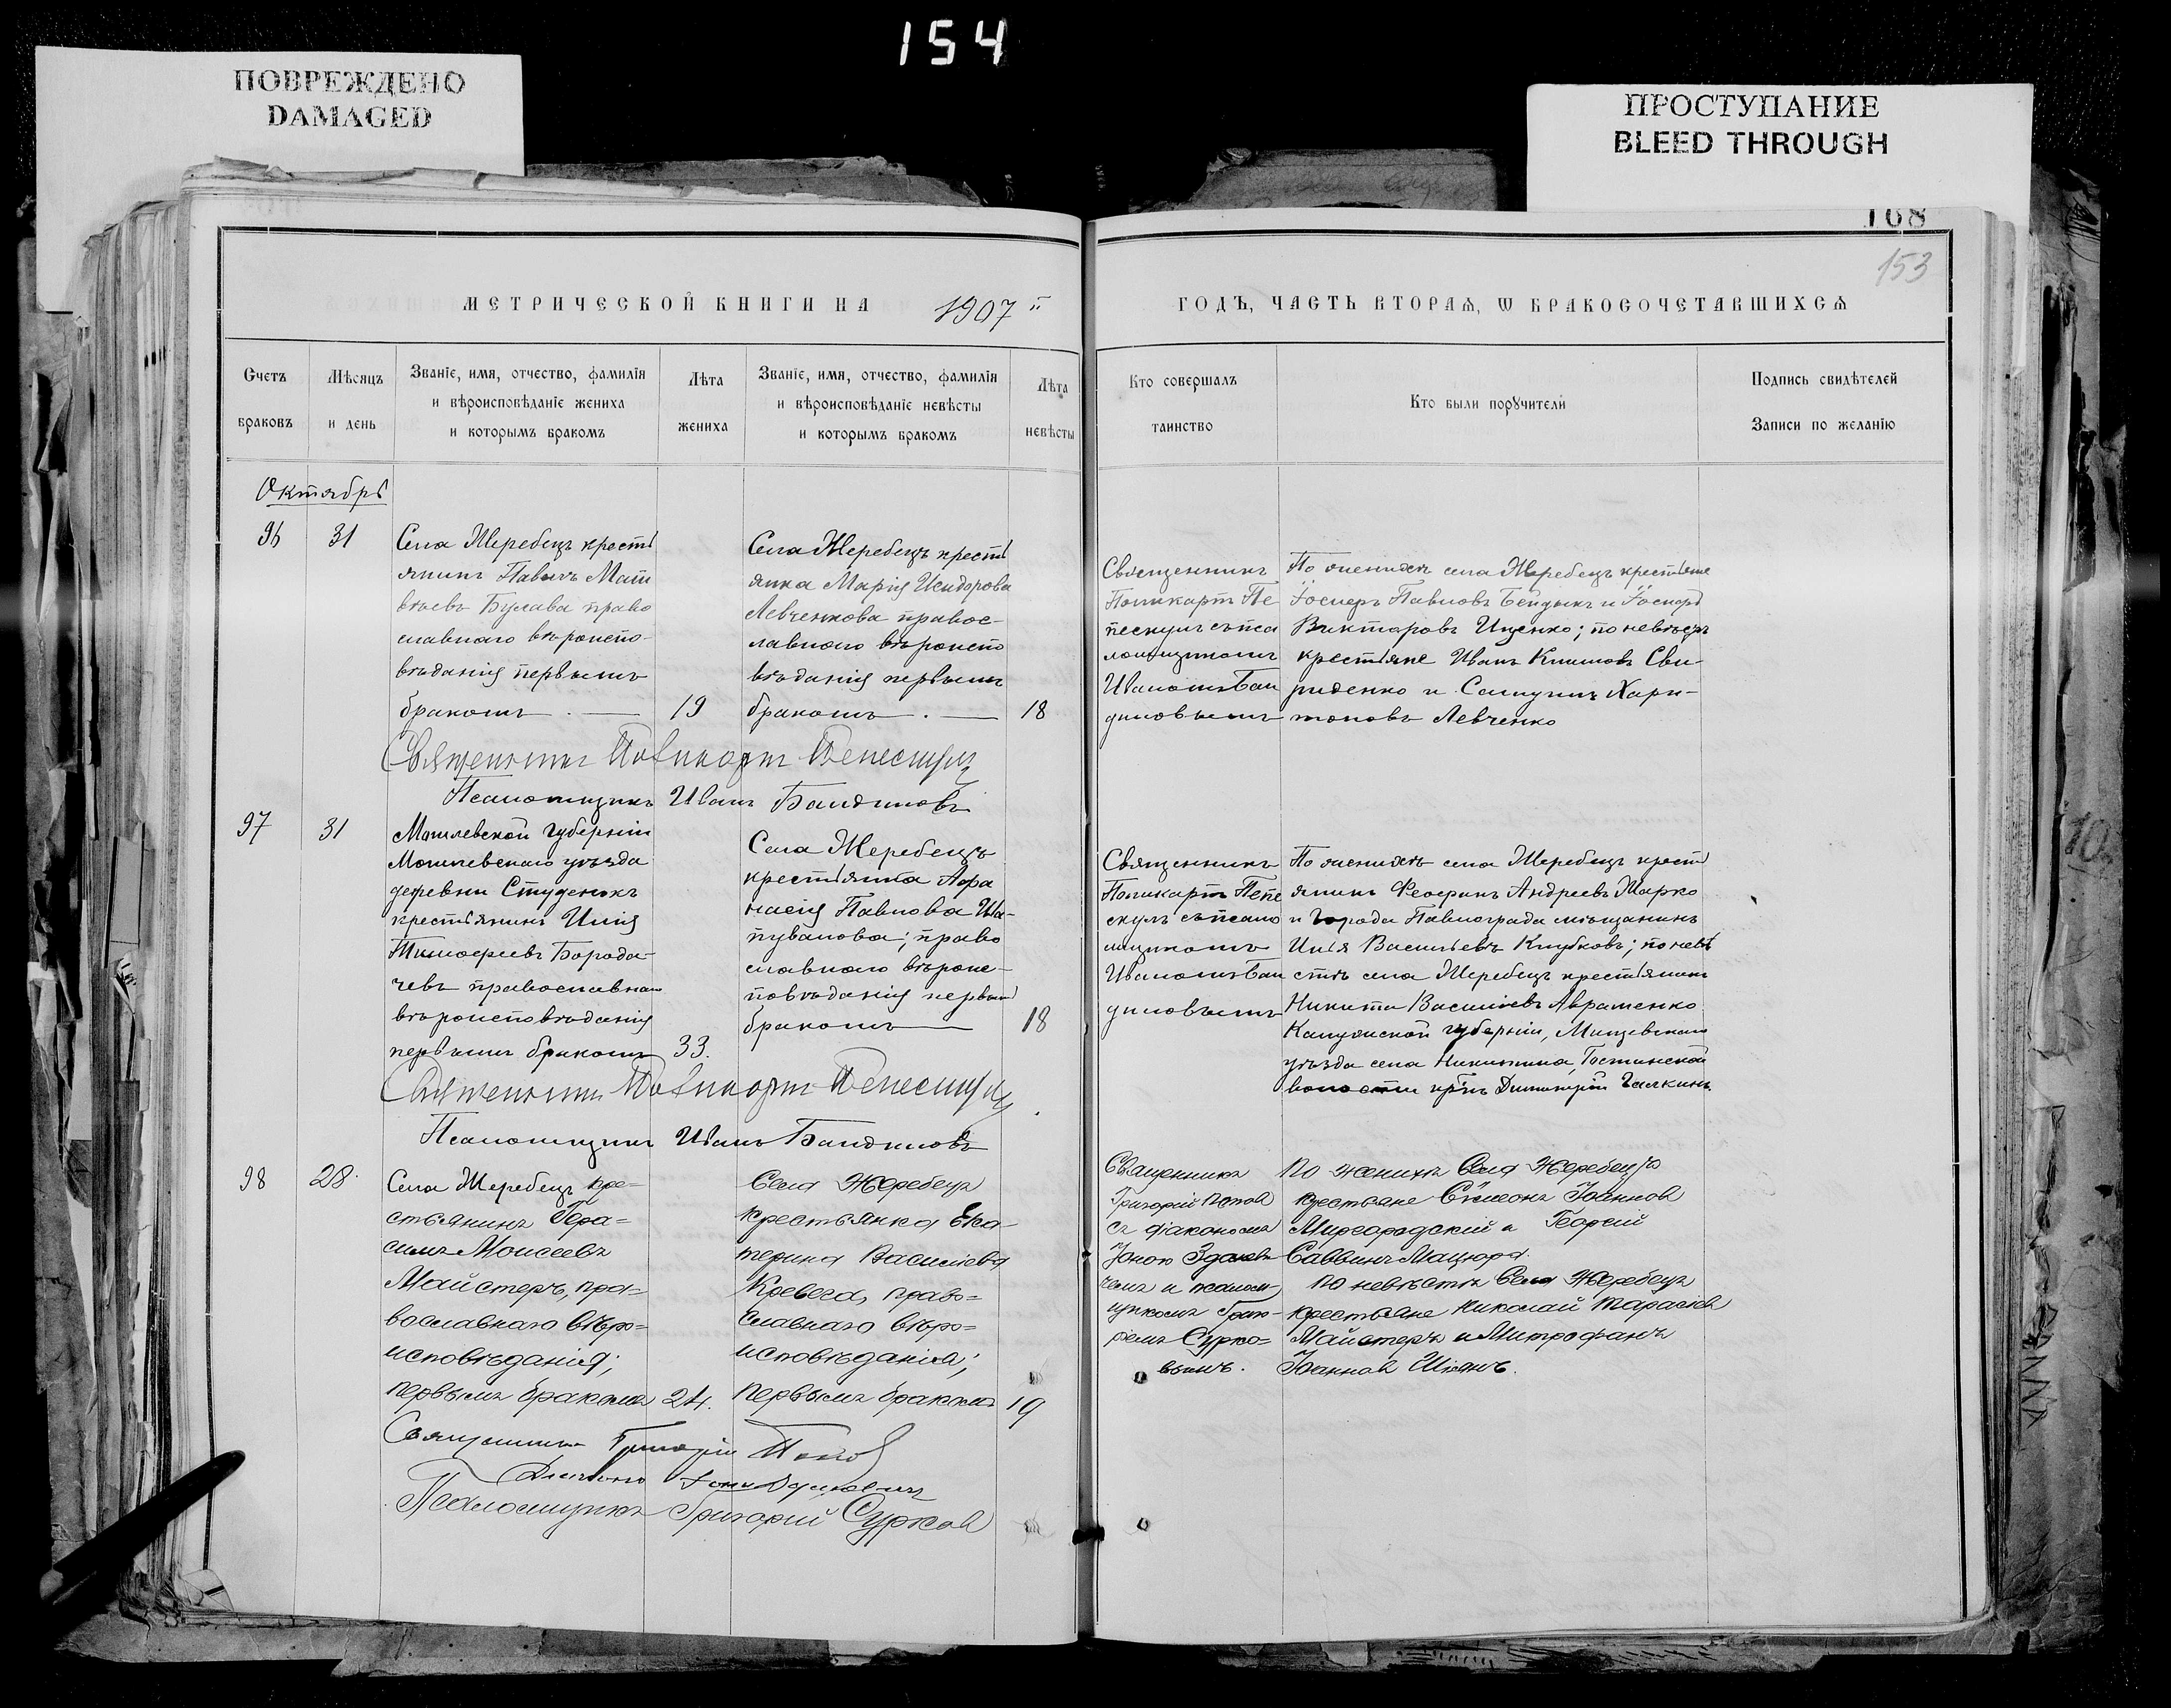 154
ПОВРЕЖДЕНО
DAMAGED
ПРОСТУПАНИЕ
BLEED THROUGH
168
153
МЕТРИЧЕСКОЙ КНИГИ НА 1907
ГОДЪ, ЧАСТЬ ВТОРАѦ, Ѡ БРАКОСОЧЕТАВШИХСѦ
Счетъ
браковъ
Мѣсяцъ
и день
Званіе, имя, отчество, фамилія
и вѣроисповѣданіе жениха
и которымъ бракомъ
Лѣта
жениха
Званіе, имя, отчество, фамилія
и вѣроисповѣданіе невѣсты
и которымъ бракомъ
Лѣта
невѣсты
Кто совершалъ
таинство
Кто были порꙋчители
Подпись свидѣтелей
Записи по желанію
Октябрь
96
31
Села Жеребецъ кресть
янинъ Павелъ Мат
вѣевъ Булава право
славнаго вѣроиспо-
вѣданія первымъ
бракомъ
19
Села Жеребецъ кресть
янка Марія Исидорова
Левченкова правос-
лавнаго вѣроиспо
вѣданія первымъ
бракомъ
18
Священникъ
Поликарпъ Пе
пескулъ съ пса
ломщикомъ
Иваномъ Бан
диловымъ
По женихѣ села Жеребецъ крестьяне
Іосифъ Павловъ Бейдыкъ и Іосифъ
Викторовъ Ищенко; по невѣстѣ
крестьяне Иванъ Климовъ Сви-
риденко и Самуилъ Хари-
тоновъ Левченко
Священникъ Поликарпъ Пепескулъ
Псаломщикъ Иванъ Бандиловъ
97
31
Могилевской губерніи
Могилевскаго уѣзда
деревни Студенокъ
крестьянинъ Илія
Тимофеевъ Борода-
чевъ православнаго
вѣроисповѣданія
первымъ бракомъ
33.
Села Жеребецъ
крестьянка Афа
насія Павлова Ша-
пувалова; право
славнаго вѣроис-
повѣданія первымъ
бракомъ
18
Священникъ
Поликарпъ Пепе
скулъ съ псало
мщикомъ
Иваномъ Бан
диловымъ
По женихѣ села Жеребецъ кресть
янинъ Феофанъ Андреевъ Марко
и города Павлограда мѣщанинъ
Илія Васильевъ Клубковъ; по невѣ
стѣ села Жеребецъ крестьянинъ
Никита Василіевъ Авраменко
Калужской губерніи, Мещевскаго
уѣзда села Никитина, Гостинской
волости кр-нъ Димитрій Галкинъ
Священникъ Поликарпъ Пепескулъ
Псаломщикъ Иванъ Бандиловъ
98
28.
Села Жеребецъ кре=
стьянинъ Гера=
симъ Моисеевъ
Майстеръ, пра=
вославнаго вѣро=
исповѣданія;
первымъ бракомъ
24.
Села Жеребецъ
крестьянка Ека-
терина Василіева
Кревега, право=
славнаго вѣро=
исповѣданія;
первымъ бракомъ
19
Священникъ
Григорій Попов
съ діакономъ
Іоною Зданеви
чемъ и псалом
щикомъ Григо-
ріемъ Сурко=
вымъ.
По женихѣ Села Жеребецъ
крестьяне Сѵмеонъ Іоанновъ
Миргородскій и Георгій
Саввинъ Мацюра.
По невѣстѣ Села Жеребецъ
крестьяне Николай Тарасіев
Майстеръ и Митрофанъ
Іоанновъ Шіянъ.
Священникъ Григорій Попов
Діаконъ Іона Зданевичъ
Псаломщикъ Григорій Сурков